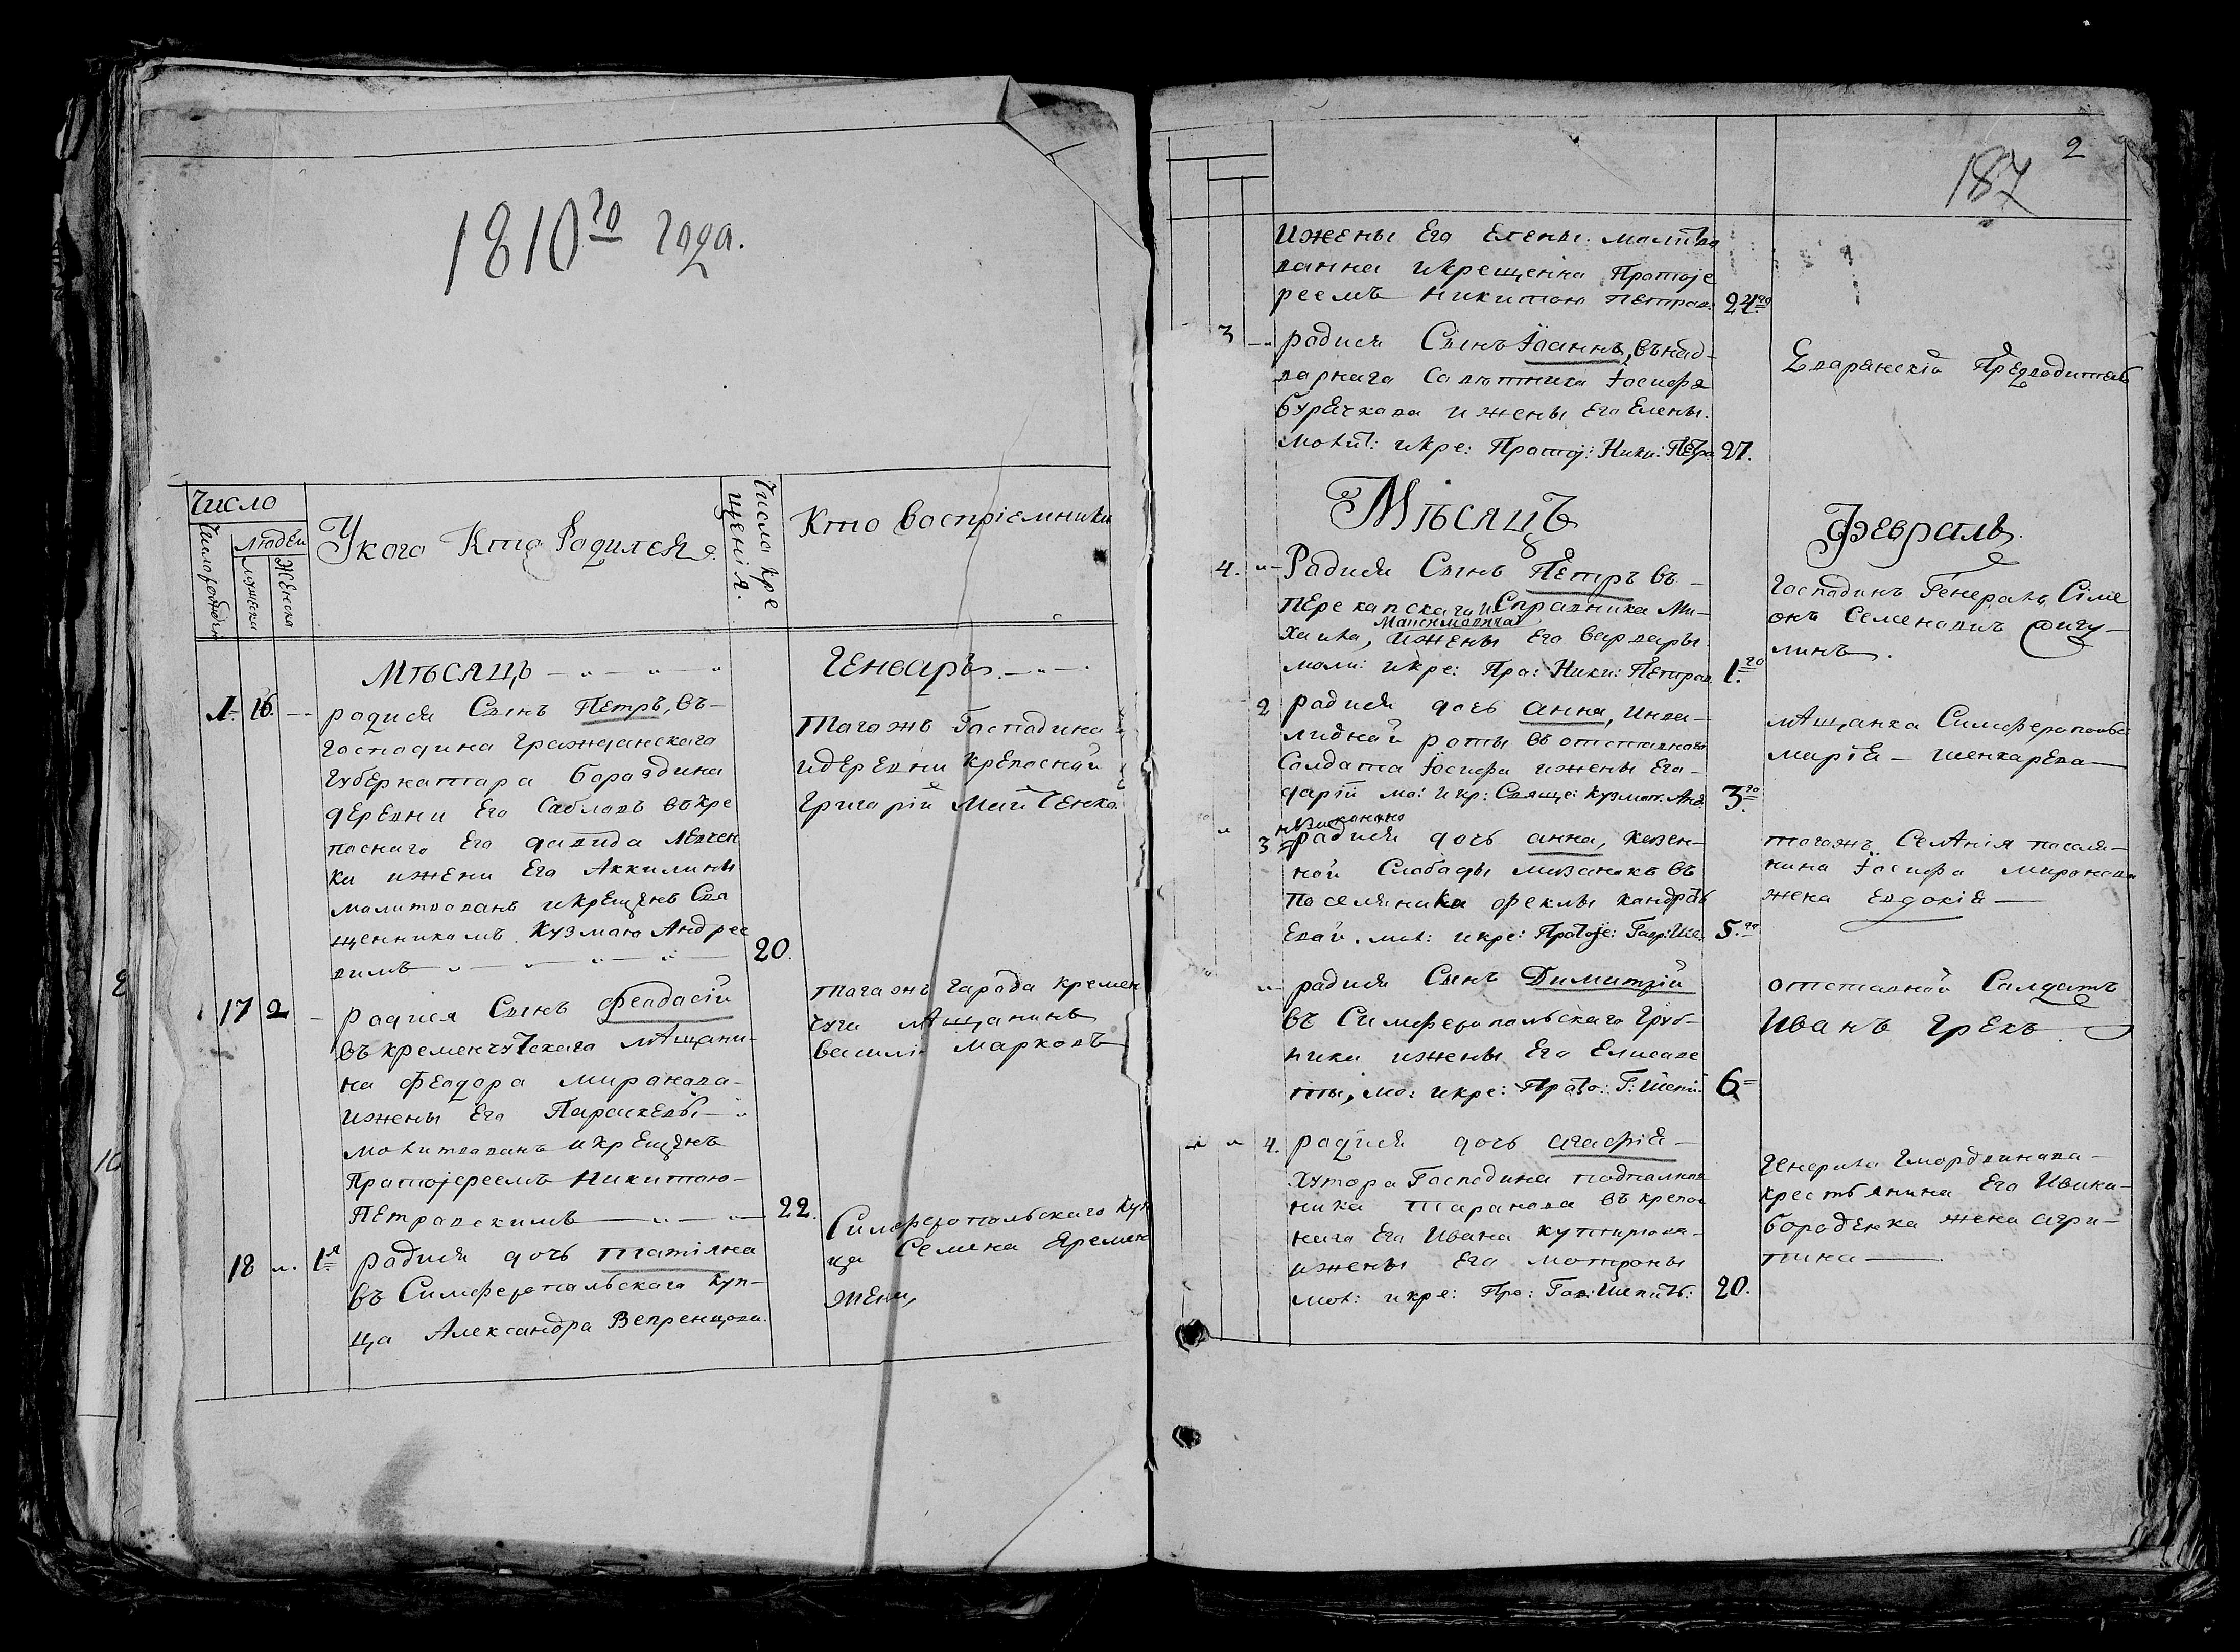 1810го года.
Число
Число рожден
людей
мужеска
Женска
Укого Кто Родился.
Число кре
щенія.
Кто воспріемники
Мѣсяцъ
Генварь.
1. 16.
радися Сынъ Петръ, въ
Господина Гражданскаго
Губернатара бараздина
деревни Его Саблавъ въкре
поснаго Его давида
ки ижени Его Аккилины
малитвованъ икрещенъ Свя
щенникамъ Кузмаю Андрее
вимъ
20.
Тагожъ Господина
идеревни крепосной
Григорій
17 2
радися Сынъ Феадасій
въ кременчутскаго мѣщани-
на Феодора миранава-
ижены Его Параскевы
молитвованъ икрещенъ
Пратоіереемъ Никитою-
Петравскимъ
22.
тагожъ гарада кремен
чуга мѣщанинъ
василій марковъ
18 1я
радися дочь татіяна
въ Симферопальскаго куп-
ца Александра Вепренцова.
Симферопольскаго куп
ца Семена Яремен
жена,
2
187
ижены Его Елены. молитво
ванна икрещенна Протоіе
реемъ Никитою Петрав.
24го
3
радися Сынъ Іоаннъ, въ над-
ворнаго Савѣтника Іосифа
бурачкова и жены Его Елены.
молит: икре: Протоj: Ники: Петра
27.
Дварянскій Предводитель
Мѣсяцъ
Февраль.
4.
Радися Сынъ Петръ въ
Перекапскага Исправника Ми-
Максимовича
хаила, ижены Его варвары.
моли: икре: Про: Ники: Петрав
1го
Господинъ Генералъ Симе
онъ Семеновичъ Фигу-
линъ.
2
радися дочь анна, инва-
лиднай роты въ отставнаго
Солдата Іосифа ижены Его
дарій мо: икр: Свяще: кузмаю. Анд.
3го
мѣщанка Симферопольс
марія шенкарева
незаконно
3
радися дочь анна, казен-
ной Слабады мазанокъ въ
Поселянки феклы кандрать
Евай. мол: икре: Протоje: Гавр: Ше.
5го
тогожъ Селѣнія поселя-
нина Іосифа миранова
жена Евдокія
радися Сынъ Димитрій
въ Симферопольскаго Груб-
ника ижены Его Елисаве
ты, мо: икре: Прото: Г: Шепи:
6
отставной Салдатъ
Иванъ Грекъ
4.
радися дочь агафія
Хутора Господина подполков
ника таранова въ крепос
наго Его Ивана
ижены Его мотроны
мол: икре: Про: Гав: Шепит:
20.
Генерала Гмордвинава
крестьянина Его
жена агри-
пина